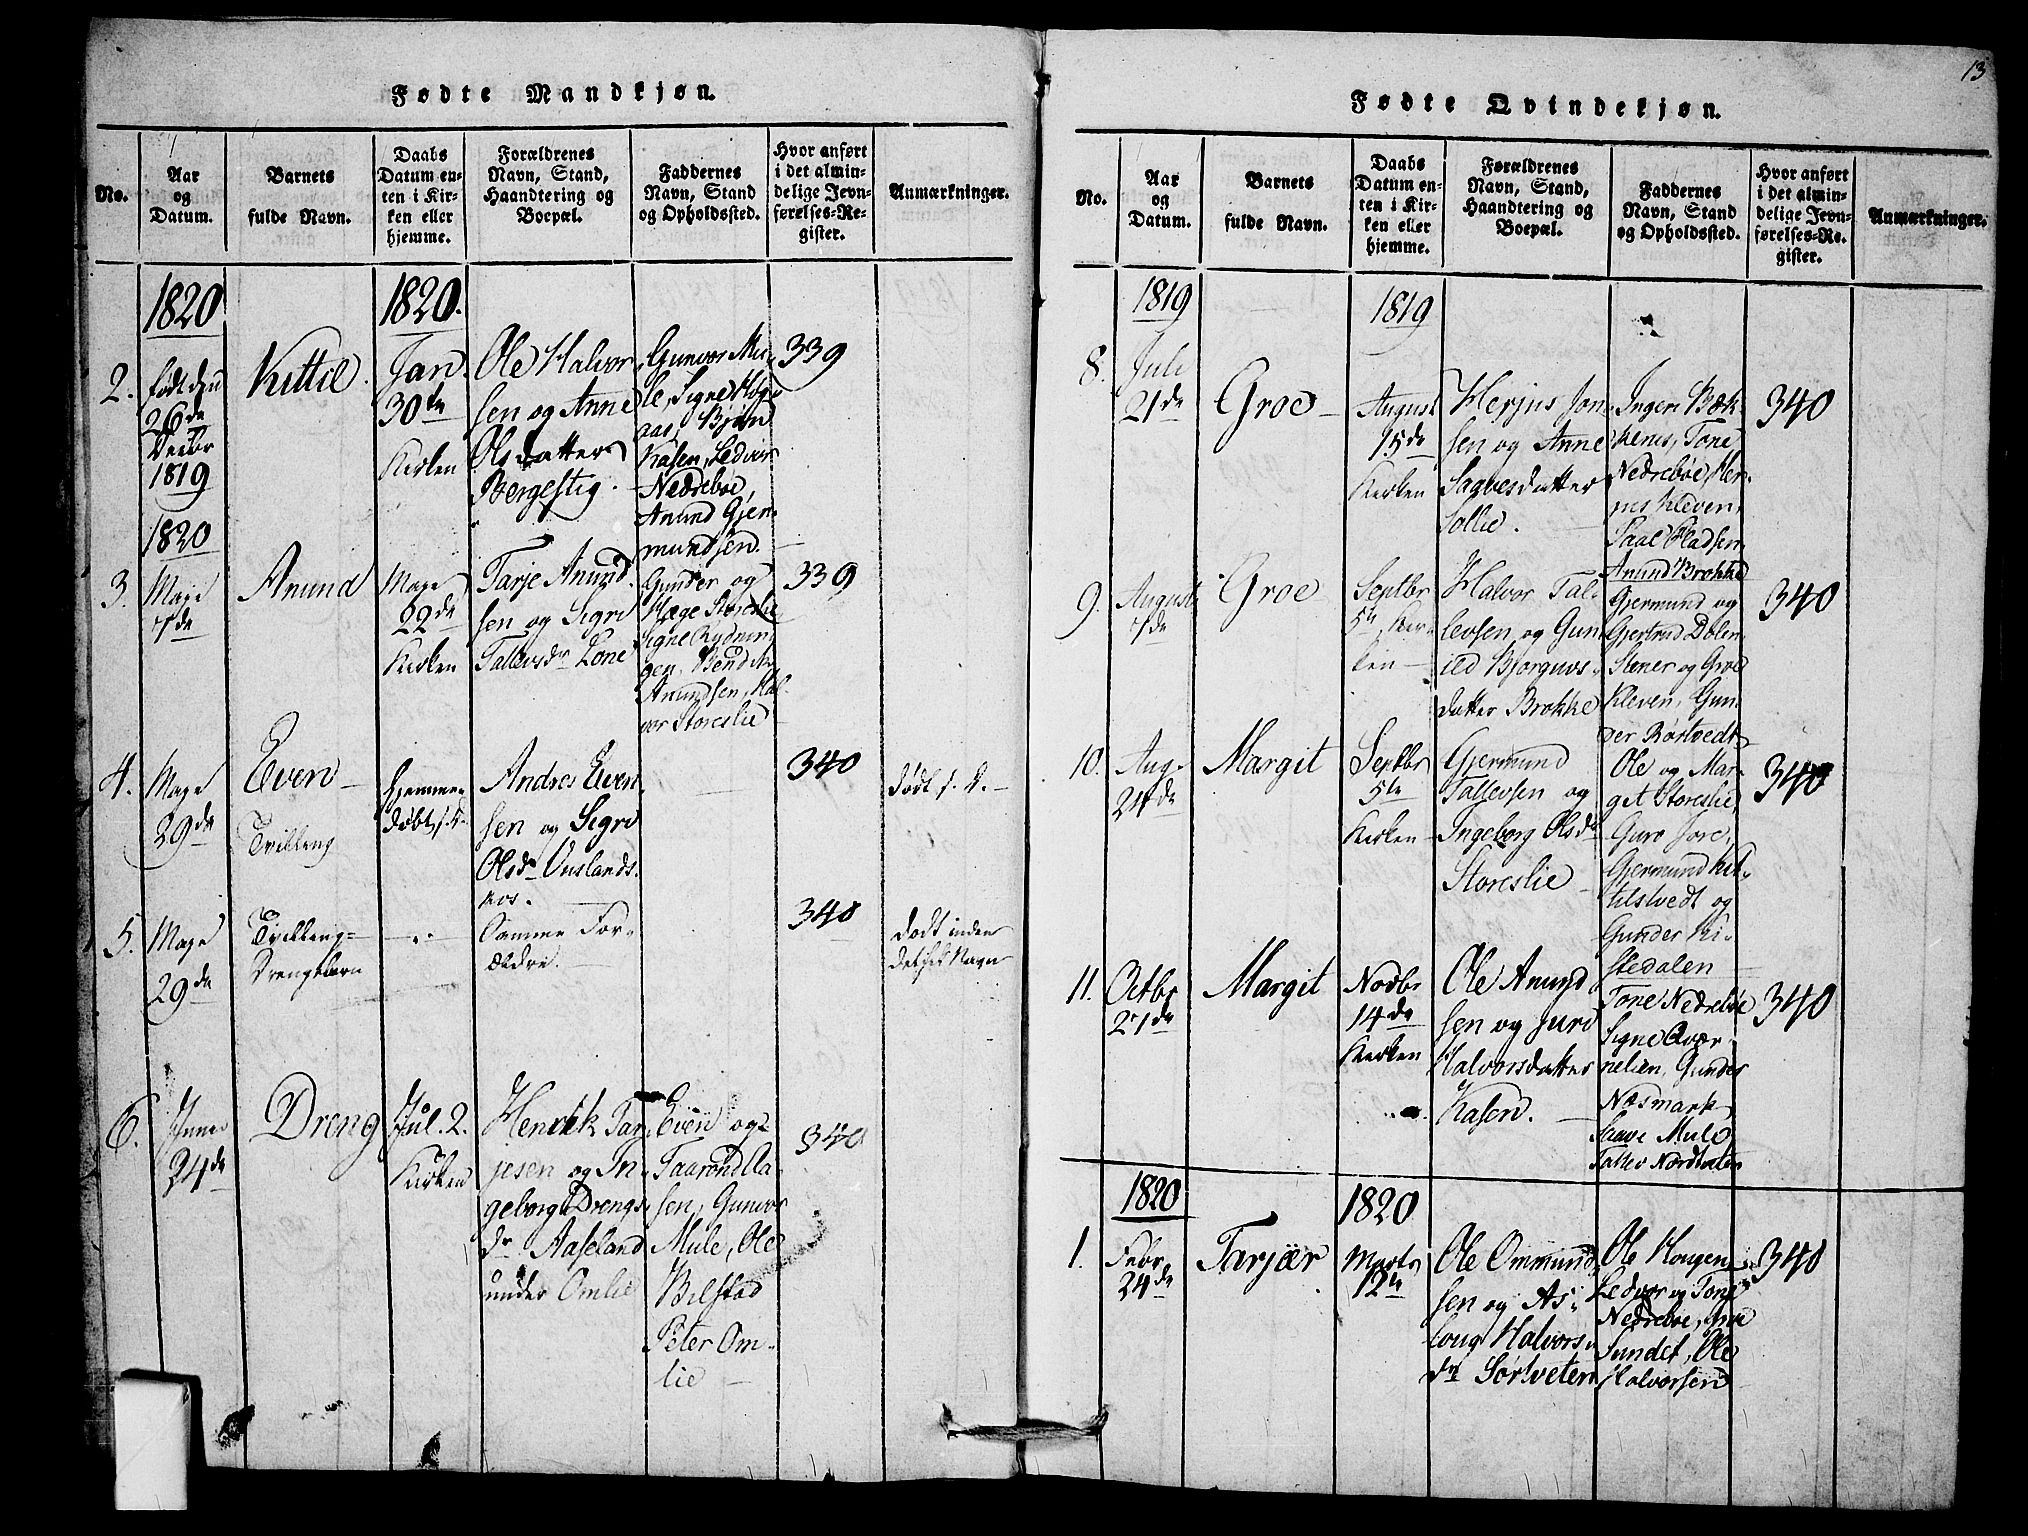 13
Fødte Mandkjøn.
No.
Aar
og
Datum.
Barnets
fulde Navn.
Daabs
Datum en-
ten i Kir-
ken eller
hjemme.
Forældrenes
Navn, Stand,
Haandtering og
Boepæl.
Faddernes
Navn, Stand
og Opholdssted.
Hvor anført
i det almin-
delige Jevn-
førelses-Re-
gister.
Anmærkninger.
1820
1820.
2.
født den
26de
Decbr
1819
Kittil.
Jan.
30te
Kirken
Ole Halvor-
sen og Anne
Olsdatter
Bergestig.
Gunvor Mu-
le, Signe Hog-
aas, Bjøn
Kasen, Ledvor
Nedreboe,
Anund Gjer-
mundsen.
339
1820
3.
Maye
7de
Anund
Maye
22de
Kirken
Tarje Anund-
sen og Sigri
Tallevsdr Lone
Gunder og
Hæge Storeslie
Signe Rydnin-
gen,
Anundsen, Hal-
vor Storeslie
339
4.
Maye
29de
Even
Tvilling
hjemme-
døbt, s. D.
Andres Even-
sen og Sigri
Olsdr Duslands-
aas.
340
Dødt s. D.
5.
Maye
29de
Tvilling-
Drengebarn
Samme For-
ældre.
340
Dødt inden
det fik Navn
6.
Junii
24de
Dreng
Jul. 2.
Kirken
Henrik Tar-
jesen og In-
geborg Drengs-
dr Aaseland
under Omlie
Even og
Taarond Aa-
sen, Gunvor
Mule, Ole
Bilstad
Peter Om-
lie
340
Fødte Qvindekjøn.
No.
Aar
og
Datum.
Barnets
fulde Navn.
Daabs
Datum en-
ten i Kir-
ken eller
hjemme.
Forældrenes
Navn, Stand,
Haandtering og
Boepæl.
Faddernes
Navn, Stand
og Opholdssted.
Hvor anført
i det almin-
delige Jevn-
førelses-Re-
gister.
Anmærkninger.
1819
1819
8.
Juli
21de
Groe
August
15de
Kirken
Herjus Jon-
sen og Anne
Saavesdatter
Sollie.
Ingeri Bæk-
kenes, Tone
Nedreboe, Her-
jus Kleven,
Saal Pladsen,
Anund Brokke
340
9.
August
7de
Groe
Septbr
5te Kir-
ken
Halvor Tal-
levsen og Gun-
ild Bjorguvs-
datter Brokke
Gjermund og
Gjertrud Dolen
Stener og Groe
Kleven, Gun-
der Børtvedt
340
10.
Aug.
24de
Margit
Septbr
5te
Kirken
Gjermund
Tallevsen og
Ingeborg Olsdr
Storeslie
Ole og Mar-
git Storeslie,
Guro Jore,
Gjermund Kit-
tilstvedt og
Gunder Ki-
stedalen
340
11.
Octbr
27de
Margit
Novbr
14de
Kirken
Ole Anund-
sen og Juri
Halvorsdatter
Kasen.
Tone Nedreboe
Signe Qvær-
nelien, Gunder
Næsmark
Saave Mule
Tallev
340
1820
1820
1.
Febr
24de
Tarjær
Marts
12te
Ole Ommund-
sen og As-
loug Halvors-
dr Sørtveten
Ole Hougen
Ledvor og Tone
Nedreboe,
Sundet, Ole
Halvorsen
340